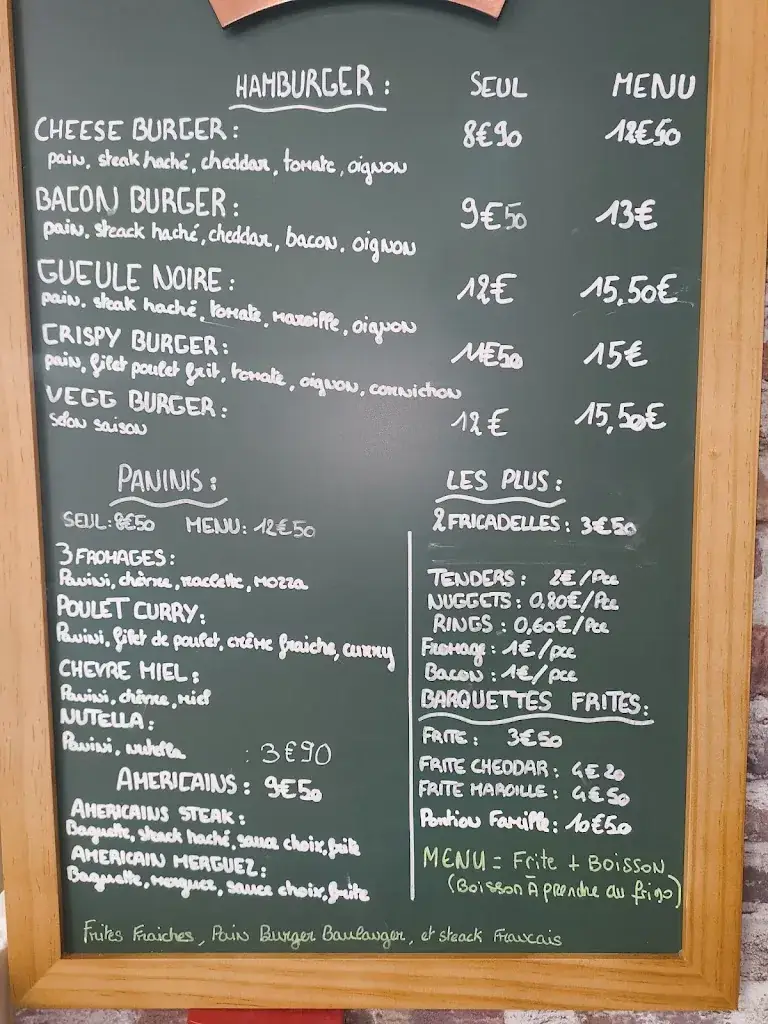 HAMBURGER : SEUL MENU
CHEESE BURGER : 8€90 12€50
pain, steak haché, cheddar, tomate, oignon
BACON BURGER : 9€50 13€
pain, steack haché, cheddar, bacon, oignon
GUEULE NOIRE : 12€ 15,50€
pain, steak haché, tomate, maroille, oignon
CRISPY BURGER : 11€50 15€
pain, filet poulet frit, tomate, oignon, cornichon
VEGG BURGER : 12€ 15,50€
selon saison
PANINIS :
SEUL : 8€50 MENU : 12€50
3 FROMAGES :
Panini, chèvre, raclette, mozza
POULET CURRY :
Panini, filet de poulet, crème fraiche, curry
CHEVRE MIEL :
Panini, chèvre, miel
NUTELLA :
Panini, nutella : 3€90
AMERICAINS : 9€50
AMERICAINS STEAK :
Baguette, steack haché, sauce choix, frite
AMERICAIN MERGUEZ :
Baguette, merguez, sauce choix, frite
LES PLUS :
2 FRICADELLES : 3€50
TENDERS : 2€/Pce
NUGGETS : 0,80€/Pce
RINGS : 0,60€/Pce
Fromage : 1€/pce
Bacon : 1€/pce
BARQUETTES FRITES :
FRITE : 3€50
FRITE CHEDDAR : 4€20
FRITE MAROILLE : 4€50
Portion Famille : 10€50
MENU = Frite + BOISSON
(Boisson À prendre au frigo)
Frites Fraiches, Pain Burger Boulanger, et steack Francais